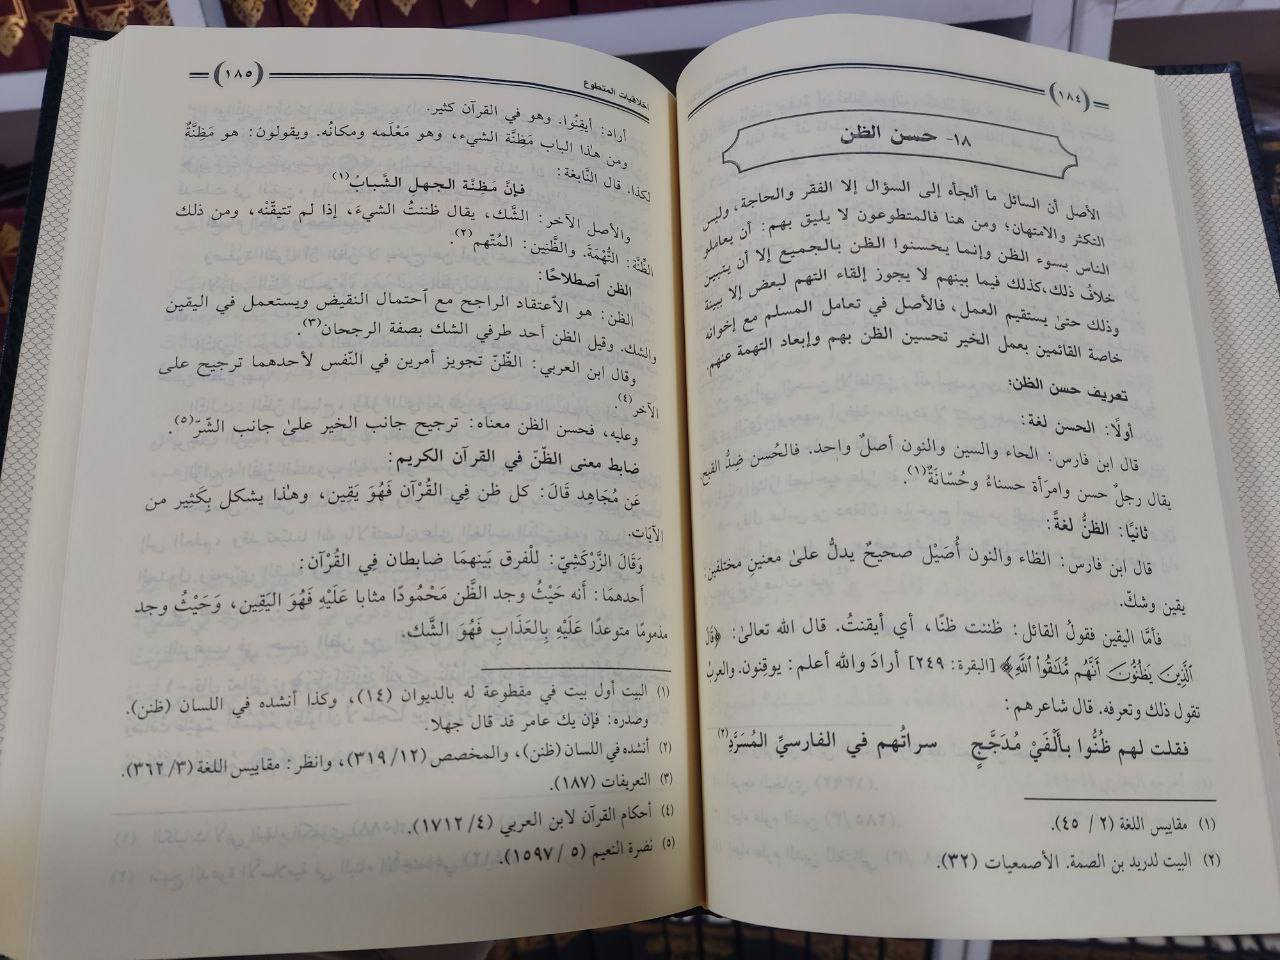 (١٨٤)
١٨- حسن الظن
الأصل أن السائل ما ألجأه إلى السؤال إلا الفقر والحاجة، وليس
التكثر والامتهان؛ ومن هنا فالمتطوعون لا يليق بهم: أن يعاملو
الناس بسوء الظن وإنما يحسنوا الظن بالجميع إلا أن يتبين
خلاف ذلك، كذلك فيما بينهم لا يجوز إلقاء التهم لبعض إلا ببينة
وذلك حتىٰ يستقيم العمل، فالأصل في تعامل المسلم مع إخوانه
خاصة القائمين بعمل الخير تحسين الظن بهم وإبعاد التهمة عنهم.
تعريف حسن الظن:
أولًا: الحسن لغة:
قال ابن فارس: الحاء والسين والنون أصلٌ واحد. فالحُسن ضِدُّ القبح
يقال رجلٌ حسن وامرَأة حسناءُ وحُسّانَةٌ(١).
ثانيًا: الظنُّ لغةً:
قال ابن فارس: الظاء والنون أُصَيْل صحيحٌ يدلُّ علىٰ معنينِ مختلفين:
يقين وشكّ.
فأمَّا اليقين فقولُ القائل: ظننت ظنًا، أي أيقنتُ. قال الله تعالىٰ: ﴿قَالَ
ٱلَّذِينَ يَظُنُّونَ أَنَّهُم مُّلَٰقُواْ ٱللَّهِ﴾ [البقرة: ٢٤٩] أرادَ والله أعلم: يوقِنون. والعربُ
تقول ذلك وتعرفه. قال شاعرهم:
فقلت لهم ظُنُّوا بألْفَيْ مُدَجَّجٍ    سراتُهم في الفارسيِّ المُسَرَّدِ(٢)
(١) مقاييس اللغة (٢ / ٤٥).
(٢) البيت لدريد بن الصمة. الأصمعيات (٣٢).
أخلاقيات المتطوع (١٨٥)
أراد: أيقنُوا. وهو في القرآن كثير.
ومن هٰذا الباب مَظِنَّة الشيء، وهو مَعْلَمه ومكانُه. ويقولون: هو مَظِنَّةٌ
لكذا. قال النَّابغة:
فإنَّ مَظِنَّة الجهل الشَّبابُ(١)
والأصل الآخر: الشَّك، يقال ظننتُ الشيءَ، إذا لم تتيقَّنْه، ومن ذلك
الظِّنَّة: التُّهْمَة. والظَّنِين: المُتَّهم(٢).
الظن ٱصطلاحًا:
الظن: هو الٱعتقاد الراجح مع ٱحتمال النقيض ويستعمل في اليقين
والشك. وقيل الظن أحد طرفي الشك بصفة الرجحان(٣).
وقال ابن العربي: الظّنّ تجويز أمرين في النّفس لأحدهما ترجيح على
الآخر(٤)
وعليه، فحسن الظن معناه: ترجيح جانب الخير علىٰ جانب الشّرّ(٥).
ضابط معنى الظّنّ في القرآن الكريم:
عَن مُجَاهِد قَالَ: كل ظن فِي القُرْآن فَهُوَ يَقِين، وهٰذا يشكل بِكَثِير من
الآيَات.
وَقَالَ الزَّرْكَشِيّ: للْفرق بَينهمَا ضابطان فِي القُرْآن:
أحدهمَا: أنه حَيْثُ وجد الظَّن مَحْمُودًا مثابا عَلَيْهِ فَهُوَ اليَقِين، وَحَيْثُ وجد
مذمومًا متوعدًا عَلَيْهِ بِالعَذَابِ فَهُوَ الشَّك.
(١) البيت أول بيت في مقطوعة له بالديوان (١٤)، وكذا أنشده في اللسان (ظنن).
وصدره: فإن يك عامر قد قال جهلا.
(٢) أنشده في اللسان (ظنن)، والمخصص (١٢/ ٣١٩)، وانظر: مقاييس اللغة (٣/ ٣٦٢).
(٣) التعريفات (١٨٧).
(٤) أحكام القرآن لابن العربي (٤/ ١٧١٢).
(٥) نضرة النعيم (٥ / ١٥٩٧).